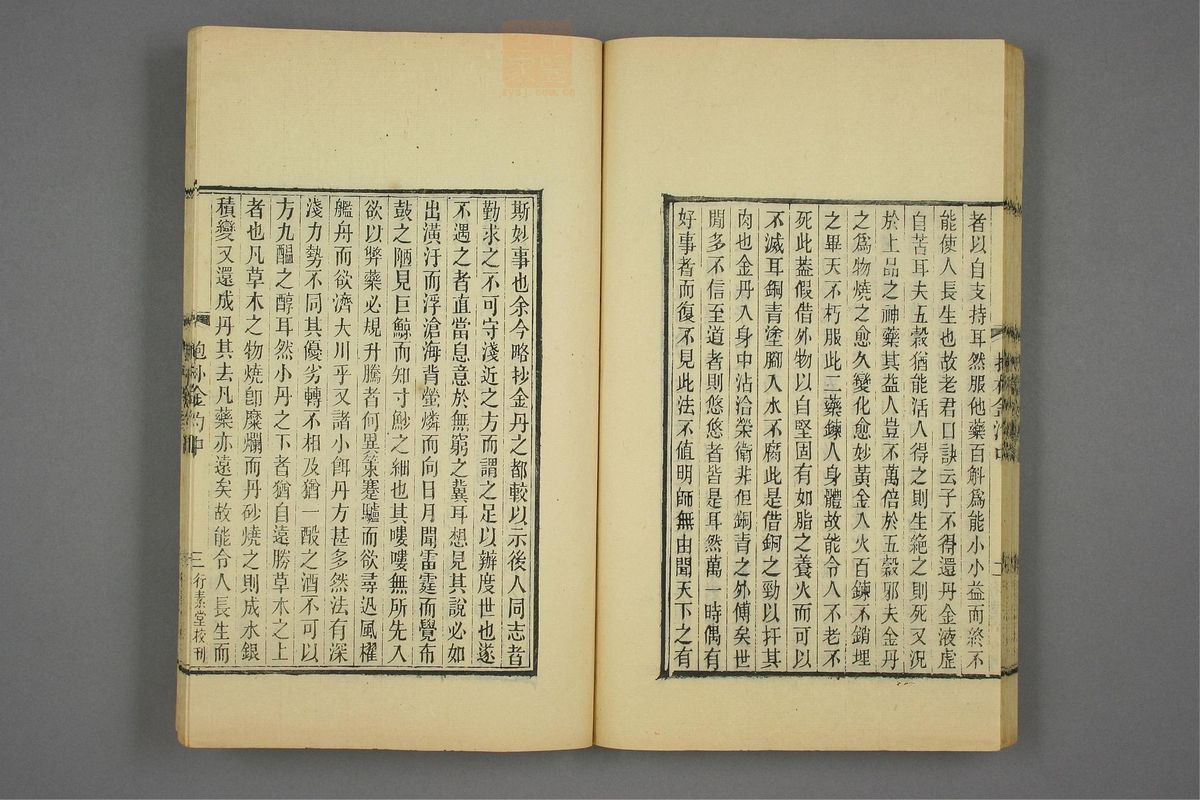 者以自支持耳然服他藥百斛爲能小小益而終不
能使人長生也故老君口訣云子不得還丹金液虛
自苦耳夫五穀猶能活人得之則生絕之則死又況
於上品之神藥其益人豈不萬倍於五穀邪夫金丹
之爲物燒之愈久變化愈妙黃金入火百鍊不銷埋
之畢天不朽服此二藥鍊人身體故能令人不老不
死此蓋假借外物以自堅固有如脂之養火而可以
不滅耳銅青塗腳入水不腐此是借銅之勁以扞其
肉也金丹入身中沾洽榮衞非但銅青之外傅矣世
閒多不信至道者則悠悠者皆是耳然萬一時偶有
好事者而復不見此法不值明師無由聞天下之有
斯妙事也余今略抄金丹之都較以示後人同志者
勤求之不可守淺近之方而謂之足以辦度世也遂
不遇之者直當息意於無窮之冀耳想見其說必如
出潢汙而浮滄海背螢燐而向日月聞雷霆而覺布
鼓之陋見巨鯨而知寸魦之細也其嘍嘍無所先入
欲以弊藥必規升騰者何異策蹇驢而欲尋迅風櫂
艦舟而欲濟大川乎又諸小餌丹方甚多然法有深
淺力勢不同其優劣轉不相及猶一酘之酒不可以
方九醞之醇耳然小丹之下者猶自遠勝草木之上
者也凡草木之物燒卽糜爛而丹砂燒之則成水銀
積變又還成丹其去凡藥亦遠矣故能令人長生而
三 行素堂校刊